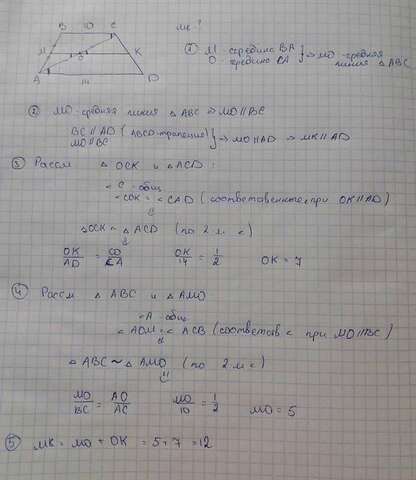 B 10 C
MK-?
M O K
A 14 D
① M - середина BA
O - середина CA } ⇒ MO - средняя линия △ ABC
② MO - средняя линия △ ABC ⇒ MO || BC
BC || AD (ABCD - трапеция)
MO || BC } ⇒ MO || AD ⇒ MK || AD
③ Рассм △ OCK и △ ACD :
∠ C - общ
∠ COK = ∠ CAD (соответственные, при OK || AD)
⇓
△ OCK ~ △ ACD (по 2-м ∠)
⇓
OK/AD = CO/CA OK/14 = 1/2 OK = 7
④ Рассм △ ABC и △ AMO
∠ A - общ
∠ AOM = ∠ ACB (соответств ∠ при MO || BC)
⇓
△ ABC ~ △ AMO (по 2-м ∠)
⇓
MO/BC = AO/AC MO/10 = 1/2 MO = 5
⑤ MK = MO + OK = 5 + 7 = 12